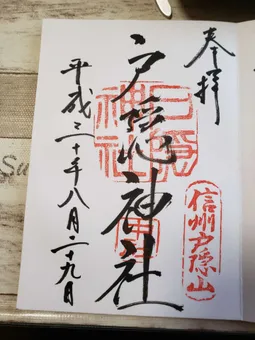 奉拝
信州戸隠山
戸隠神社
戸隠神社
平成三十年八月二十九日
Su